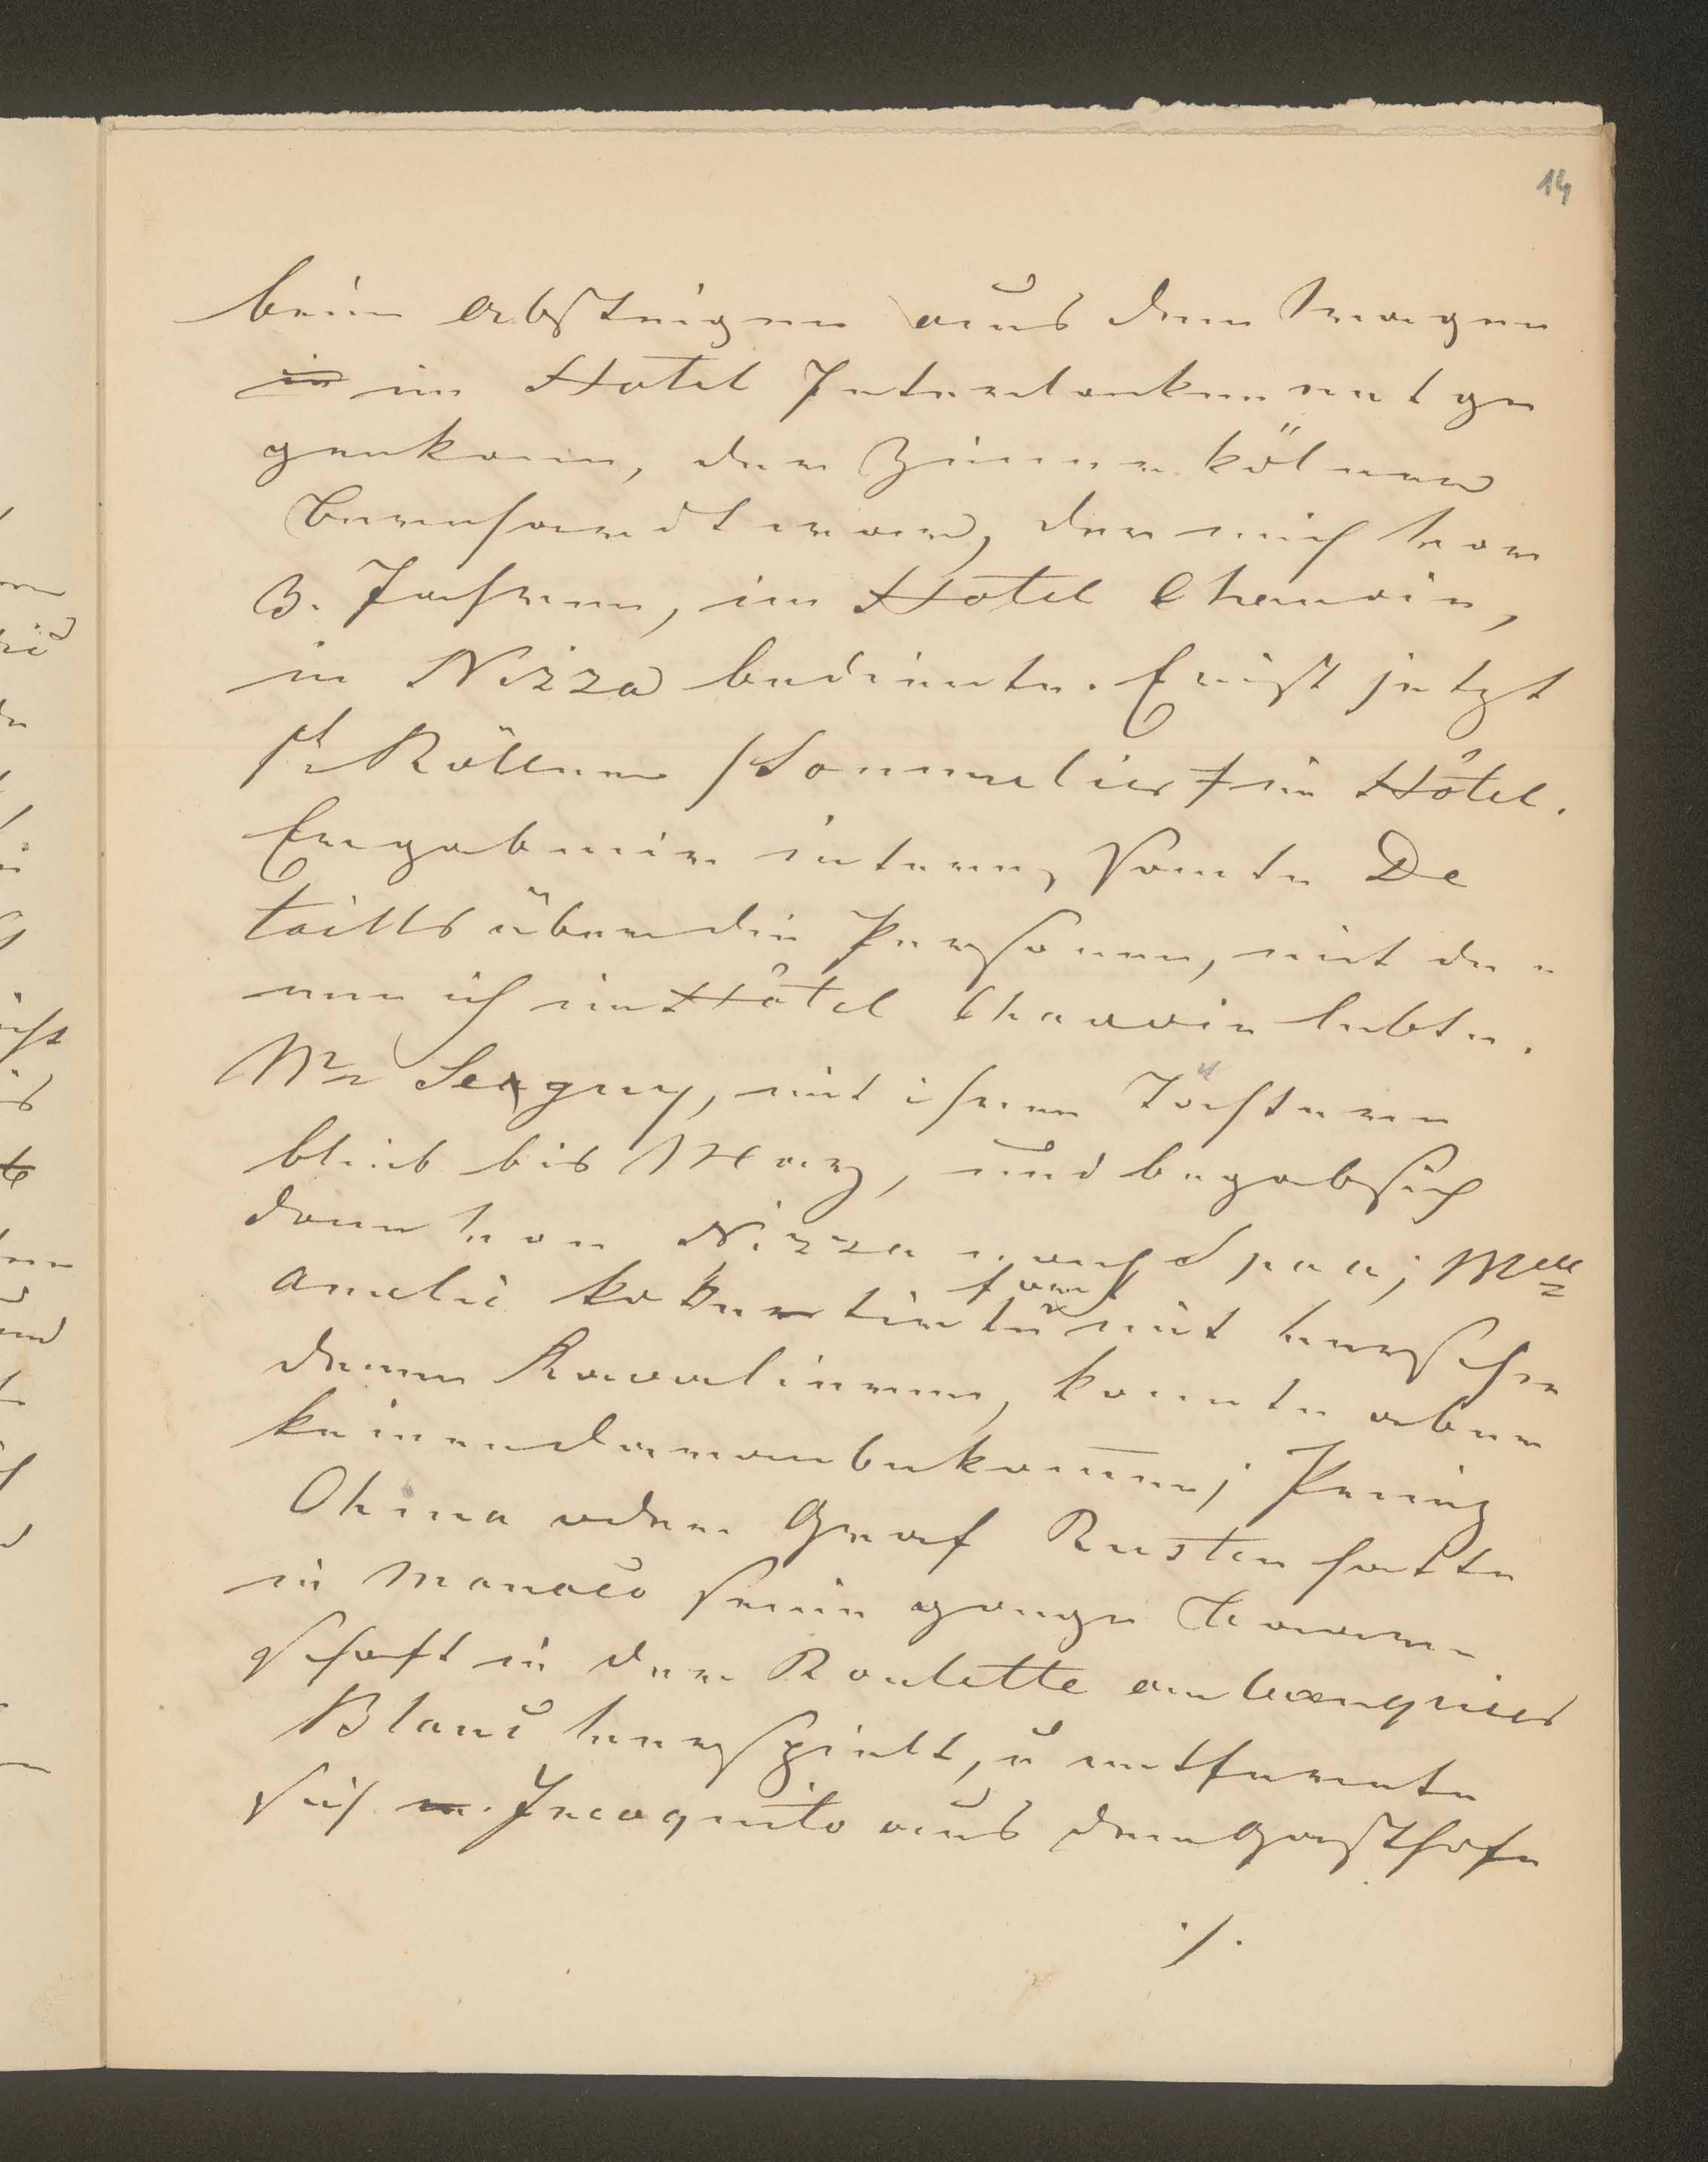 14
beim Absteigen aus dem Wagen
in im Hotel Interlanken entge
genkam, der Zimmerkölner
Bernhardt war, der mich vor
3. Jahren, im Hotel Chauvin,
in Nizza bediente. Er ist jetzt
Köllner /Sommelier/ im Hôtel.
Er gab mir interessante De
taills über die Personen, mit de-
nen ich im Hôtel Chauvin lebte.
Mme Seegny, mit ihren Töchtern
blieb bis März, und begab sich
dann von Nizza nach Spaa; Mlle
Amelie kokettirte fort mit verschie
denen Kavalieren, konnte aber
keinen daran bekommen; Prinz
Ohina oder Graf Rusten hatte
in Monaco seine ganze Baar-
schaft in der Roulette am banquier
Blanc verspielt, u entfernte
sich m. Incognito aus dem Gasthofe
./.